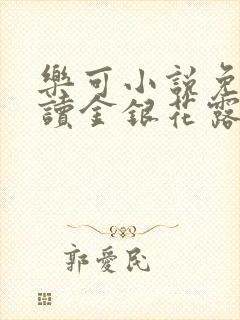 樂可小說免
讀金銀花露
郭愛民